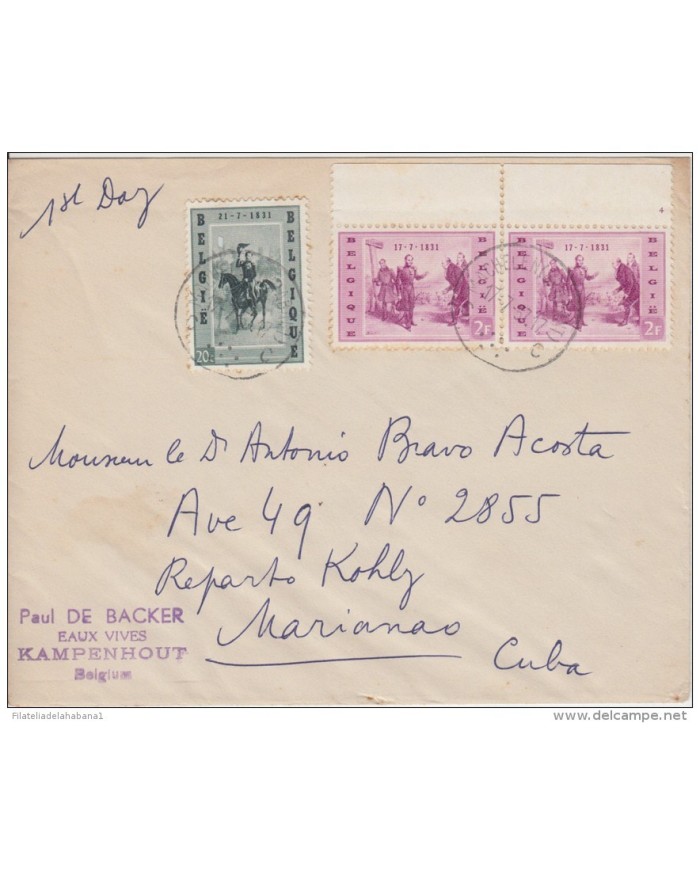 1st Day
21-7-1831
BELGIË
BELGIQUE
20c
17-7-1831
BELGIQUE
BELGIË
2F
17-7-1831
BELGIQUE
BELGIË
2F
4
Monsieur le Dr Antonio Bravo Acosta
Ave 49 No 2855
Reparto Kohly
Marianao
Cuba
Paul DE BACKER
EAUX VIVES
KAMPENHOUT
Belgium
Filateliadelahabana1
www.delcampe.net